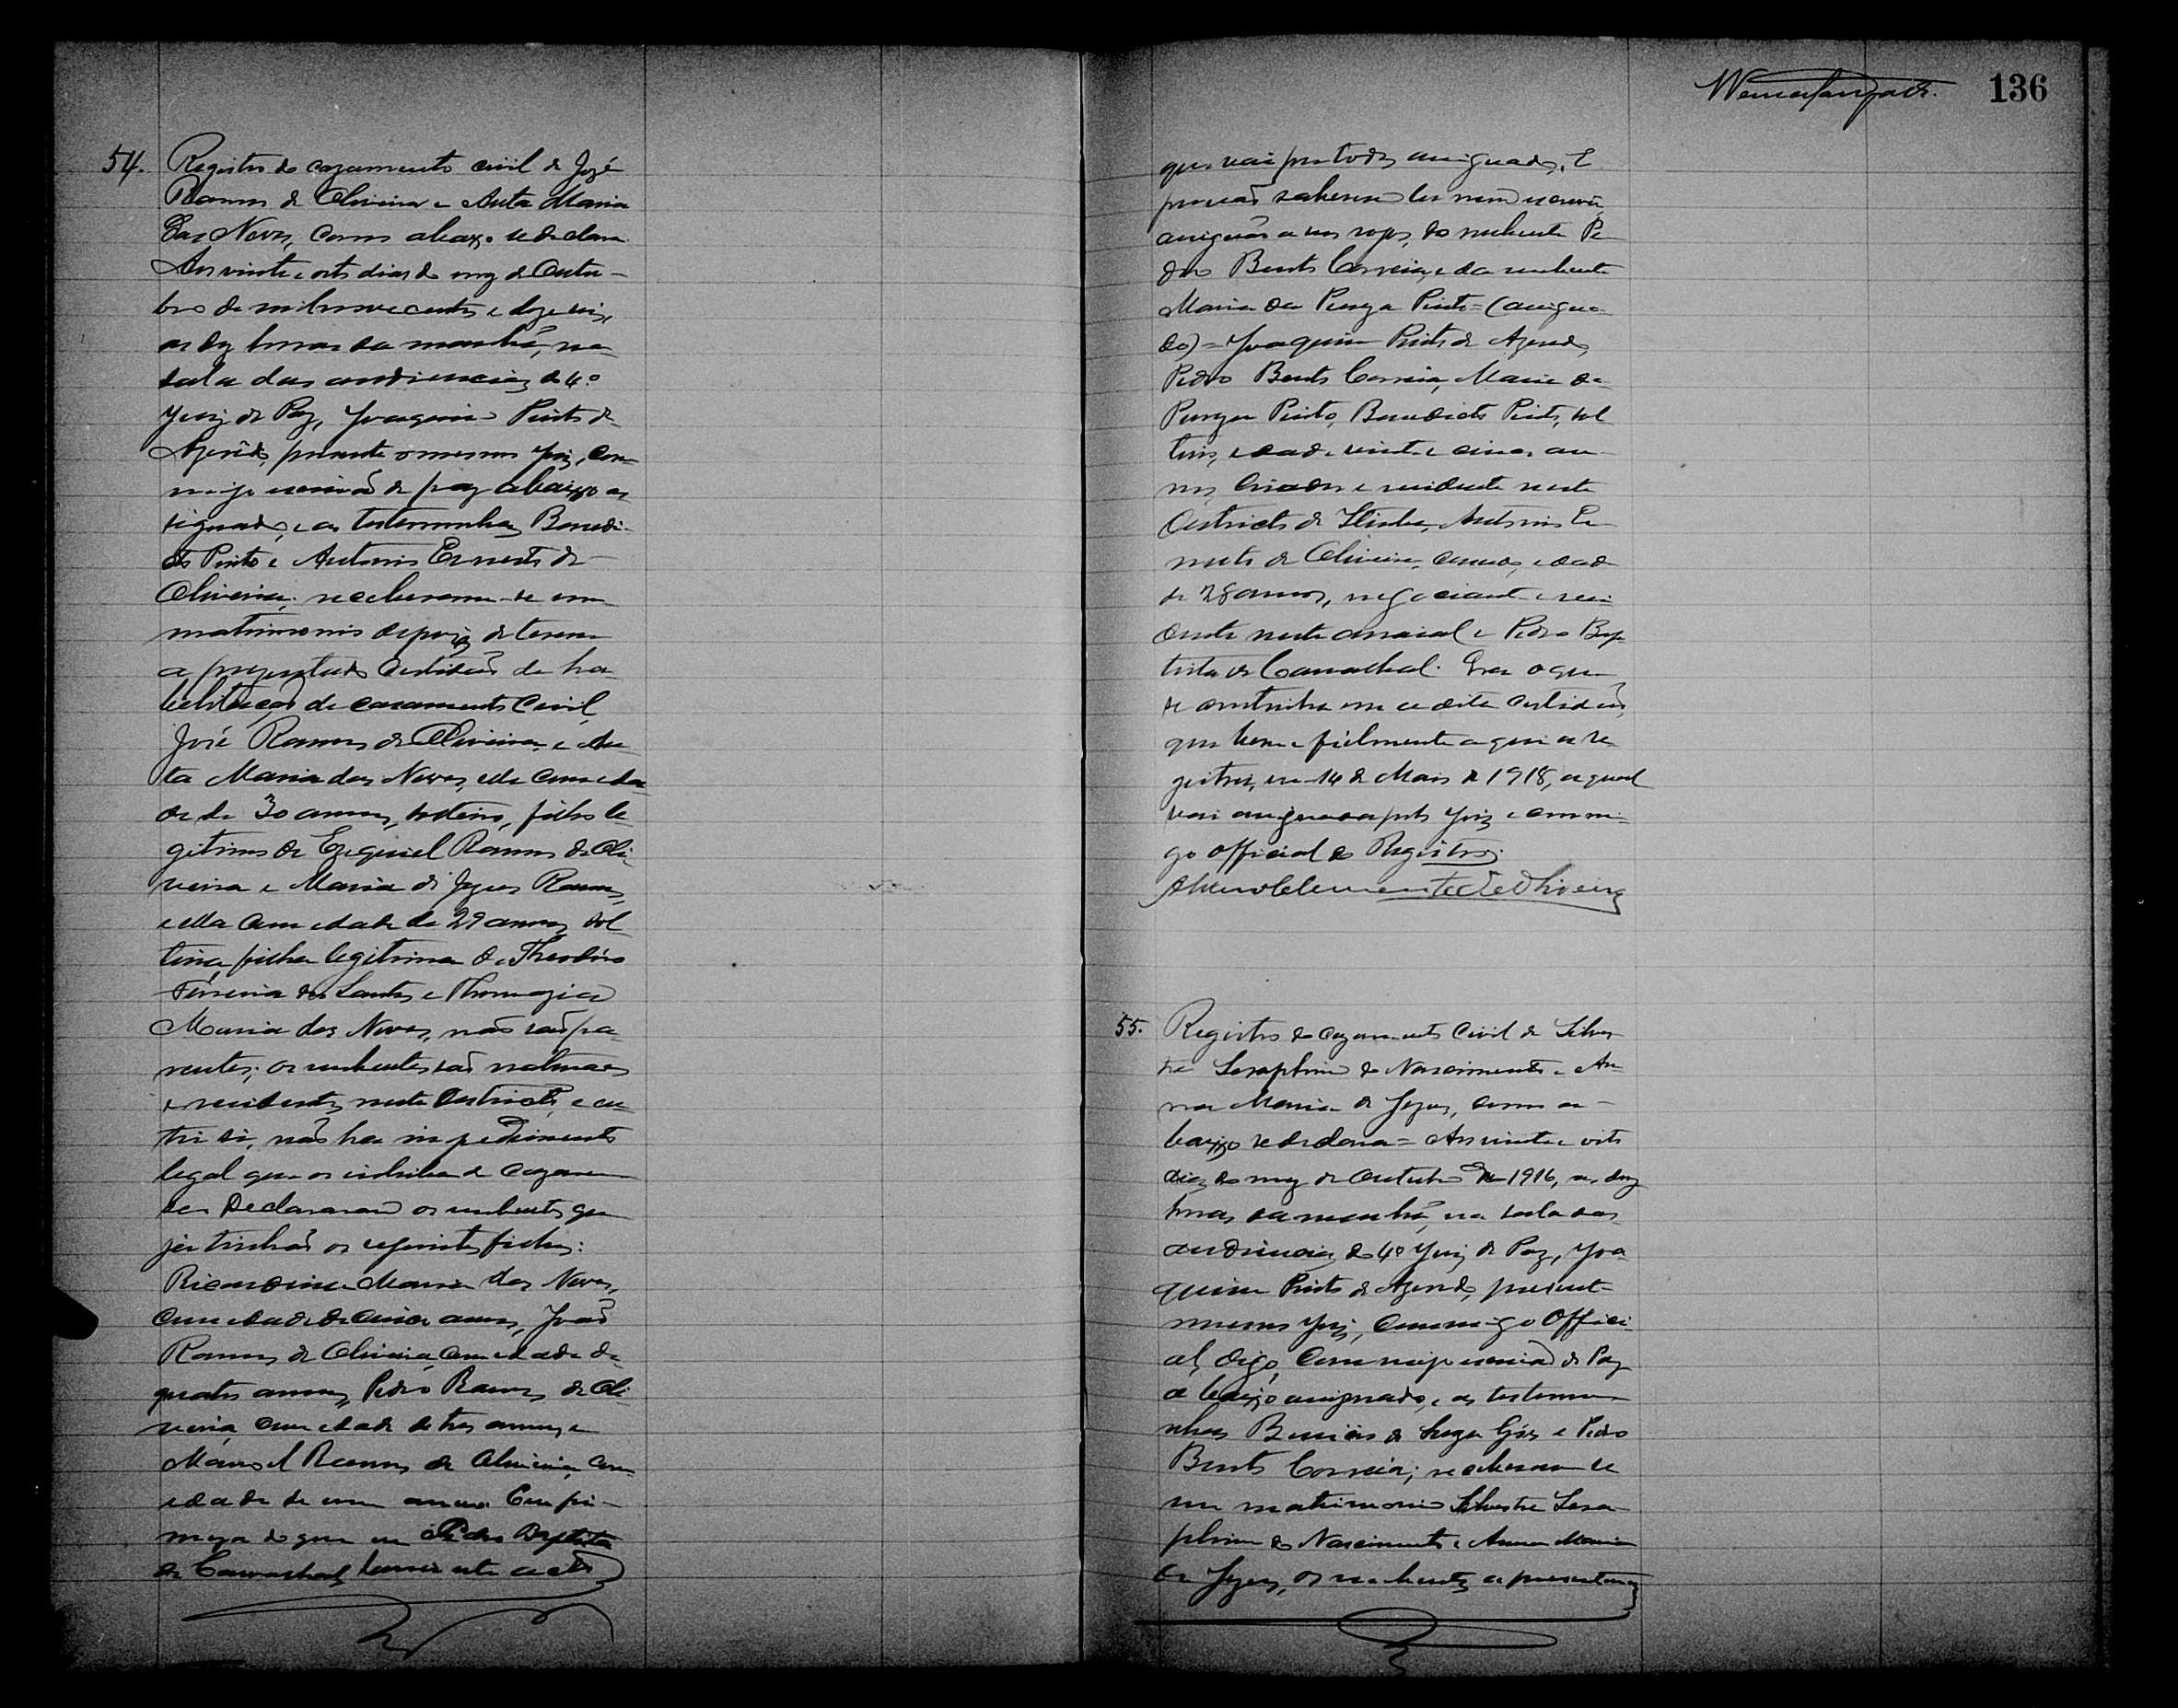 136
54. Registro do cazamento civil de José
Ramos de Oliveira e Auta Maria
das Neves, como abaixo se declara.
Aos vinte e oito dias do mez de Outu-
bro de mil novecentos e dezeseis,
as dez horas da manhã, na
sala das audiencias do 4º
Juiz de Paz, Joaquim Pinto de
Azevedo, presente o mesmo Juiz, com-
migo escrivão de paz abaixo as
signado, e as testemunhas Benedi-
cto Pinto e Antonio Ernesto de
Oliveira; receberam-se em
matrimonio depois de terem
apresentado certidão de ha-
bilitação de casamento civil,
José Ramos de Oliveira e Au-
ta Maria das Neves, elle com eda
de de 30 annos, solteiro, filho le
gitimo de Ezequiel Ramos de Oli
veira e Maria de Jezus Ramos,
e ella com edade de 29 annos, sol
teira, filha legitima de Theodoro
Ferreira dos Santos e Thomazia
Maria das Neves, não são pa-
rentes; os nubentes são naturaes
e residentes neste Districto, e en-
tre si, não ha impedimento
legal que os inhiba de cazarem
Declararam os nubentes que
já tinhão os seguintes filhos:
Ricardina Maria das Neves,
com edade de cinco annos, João
Ramos de Oliveira, com edade de
quatro annos, Pedro Ramos de Oli
veira, com edade de tres annos, e
Manoel Ramos de Oliveira, com
edade de um anno. Em fir-
meza do que eu Pedro Baptista
de Carvalhal, lavrei este acto
que vai por todos assignado. E
por não saberem ler nem escrever,
assignão a seus rogos, do nubente Pe
dro Bento Correia, e da nubente
Maria da Pureza Pinto = (assigna-
do) = Joaquim Pinto de Azevedo,
Pedro Bento Correia, Maria da
Pureza Pinto, Benedicto Pinto, sol
teiro, edade vinte e cinco an-
nos, criador e residente neste
Districto de Antonio Er
nesto de Oliveira, casado, edade
de 28 annos, negociante e resi
dente neste arraial e Pedro Bap
tista de Carvalhal. Era o que
se continha em a dita certidão,
que bem e fielmente aqui a re
gistrei, em 14 de Maio de 1918, a qual
vai assignada pelo Juiz e commi-
go official do Registro.
Clemente de Oliveira
55. Registro do cazamento Civil de Silves
tre Seraphim do Nascimento e An-
na Maria de Jezus, como a-
baixo se declara = Aos vinte e oito
dias do mez de Outubro de 1916, as dez
horas da manhã, na sala das
audiencias do 4º Juiz de Paz, Joa
quim Pinto de Azevedo, presente
mesmo Juiz, commigo Offici-
al, digo, commigo escrivão de Paz
abaixo assignado, e as testemu
nhas de e Pedro
Bento Correia; receberam se
em matrimonio Silvestre Sera
phim do Nascimento e Anna Maria
de Jezus, os nubentes apresentaram